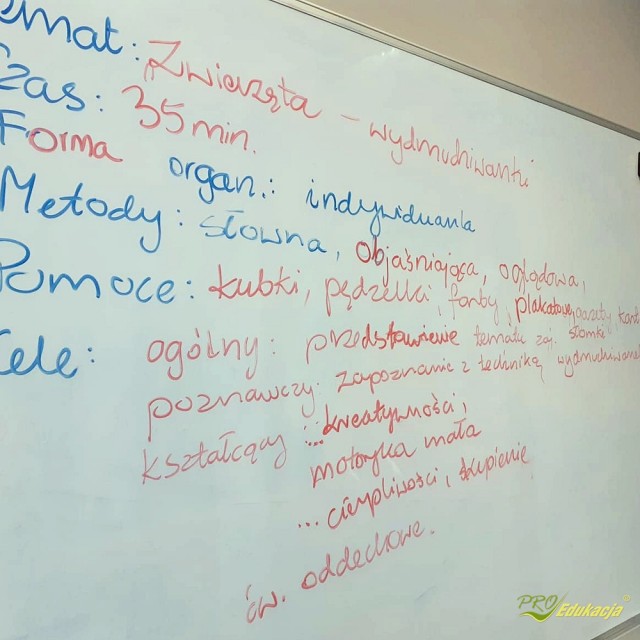 emat: Zwierzęta - wydmuchiwantki
Czas: 35 min.
Forma organ.: indywidualna
Metody: słowna, objaśniająca, oglądowa,
Pomoce: kubki, pędzelki, farby, plakatowe, gazety,
Cele: ogólny: przedstawienie tematu zaj. słomki
poznawczy: zapoznanie z techniką wydmuchiwane
kształcący: ...kreatywności,
motoryka mała
... cierpliwości, skupienie,
ćw. oddechowe.
PRO Edukacja